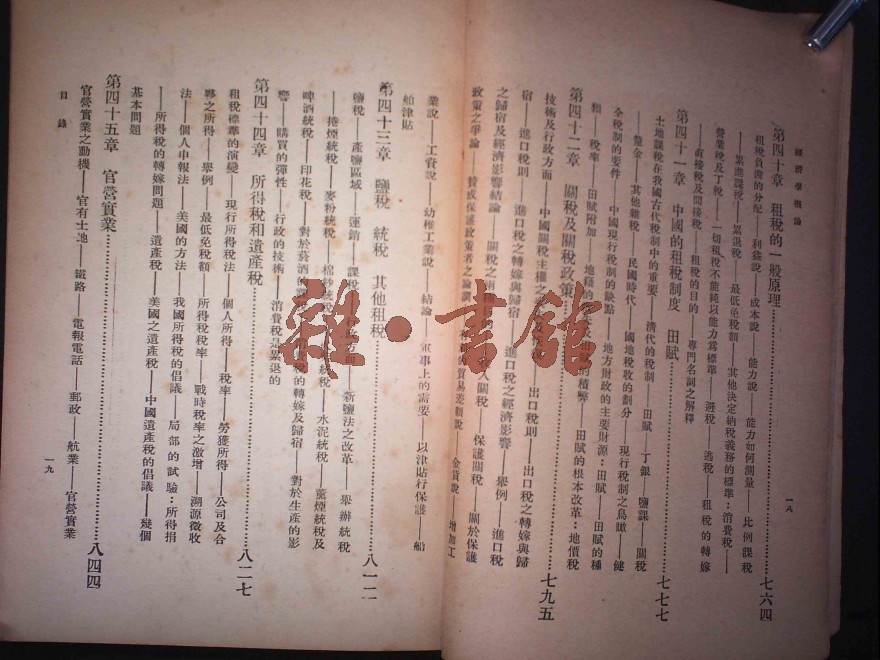 經濟學概論
一八
第四十章 租稅的一般原理…………七六四
租稅負擔的分配——利益說——成本說——能力說——能力如何測量——比例課稅
——累進課稅——累退稅——最低免稅額——其他決定納稅義務的標準：消費稅——
營業稅及丁稅——一切租稅不能純以能力爲標準——避稅——逃稅——租稅的轉嫁
——直接稅及間接稅——租稅的目的——專門名詞之解釋
第四十一章 中國的租稅制度 田賦…………七七七
土地課稅在我國古代稅制中的重要——清代的稅制——田賦——丁銀——鹽課——關稅
——釐金——其他雜稅——民國時代——國地稅收的劃分——現行稅制之鳥瞰——健
全稅制的要件——中國現行稅制的缺點——地方財政的主要財源：田賦——田賦的種
類——稅率——田賦附加——地籍 的積弊——田賦的根本改革：地價稅
第四十二章 關稅及關稅政策…………七九五
技術及行政方面——中國關稅主權之 出口稅則——出口稅之轉嫁與歸
宿——進口稅則——進口稅之轉嫁與歸宿——進口稅之經濟影響——舉例——進口稅
之歸宿及經濟影響結論——關稅之 入關稅——保護關稅——關於保護
政策之爭論——贊成保護政策者之論調 的貿易差額說——金貨說——增加工
業說——工資說——幼稚工業說——結論——軍事上的需要——以津貼行保護——船
舶津貼
第四十三章 鹽稅 統稅 其他租稅…………八一二
鹽稅——產鹽區域——運銷——課稅 方面——新鹽法之改革——舉辦統稅
——捲煙統稅——麥粉統稅——棉紗統稅 統稅——水泥統稅——薰煙統稅及
啤酒統稅——印花稅——對於菸酒的課稅 稅的轉嫁及歸宿——對於生產的影
響——購買的彈性——行政的技術——消費稅是累退的
第四十四章 所得稅和遺產稅…………八二七
租稅標準的演變——現行所得稅法——個人所得——稅率——勞獲所得——公司及合
夥之所得——舉例——最低免稅額——所得稅稅率——戰時稅率之激增——溯源徵收
法——個人申報法——美國的方法——我國所得稅的倡議——局部的試驗：所得捐
——所得稅的轉嫁問題——遺產稅——美國之遺產稅——中國遺產稅的倡議——幾個
基本問題
第四十五章 官營實業…………八四四
官營實業之動機——官有土地——鐵路——電報電話——郵政——航業——官營實業
目錄
一九
雜·書館